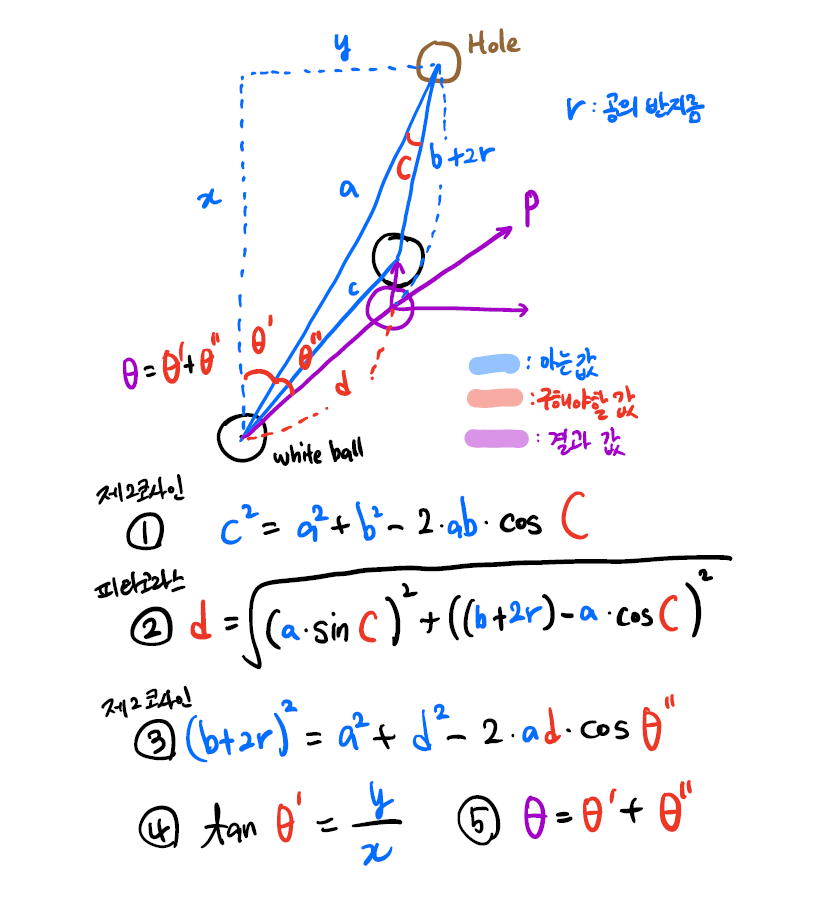 y
Hole
r : 공의 반지름
C
b+2r
a
x
P
c
θ'
θ''
θ = θ' + θ''
d
: 아는 값
: 구해야할 값
: 결과 값
white ball
제2코사인
① c² = a² + b² - 2·ab·cos C
피타고라스
② d = √(a·sin C)² + ((b+2r) - a·cos C)²
제2코사인
③ (b+2r)² = a² + d² - 2·ad·cos θ''
④ tan θ' = y/x
⑤ θ = θ' + θ''